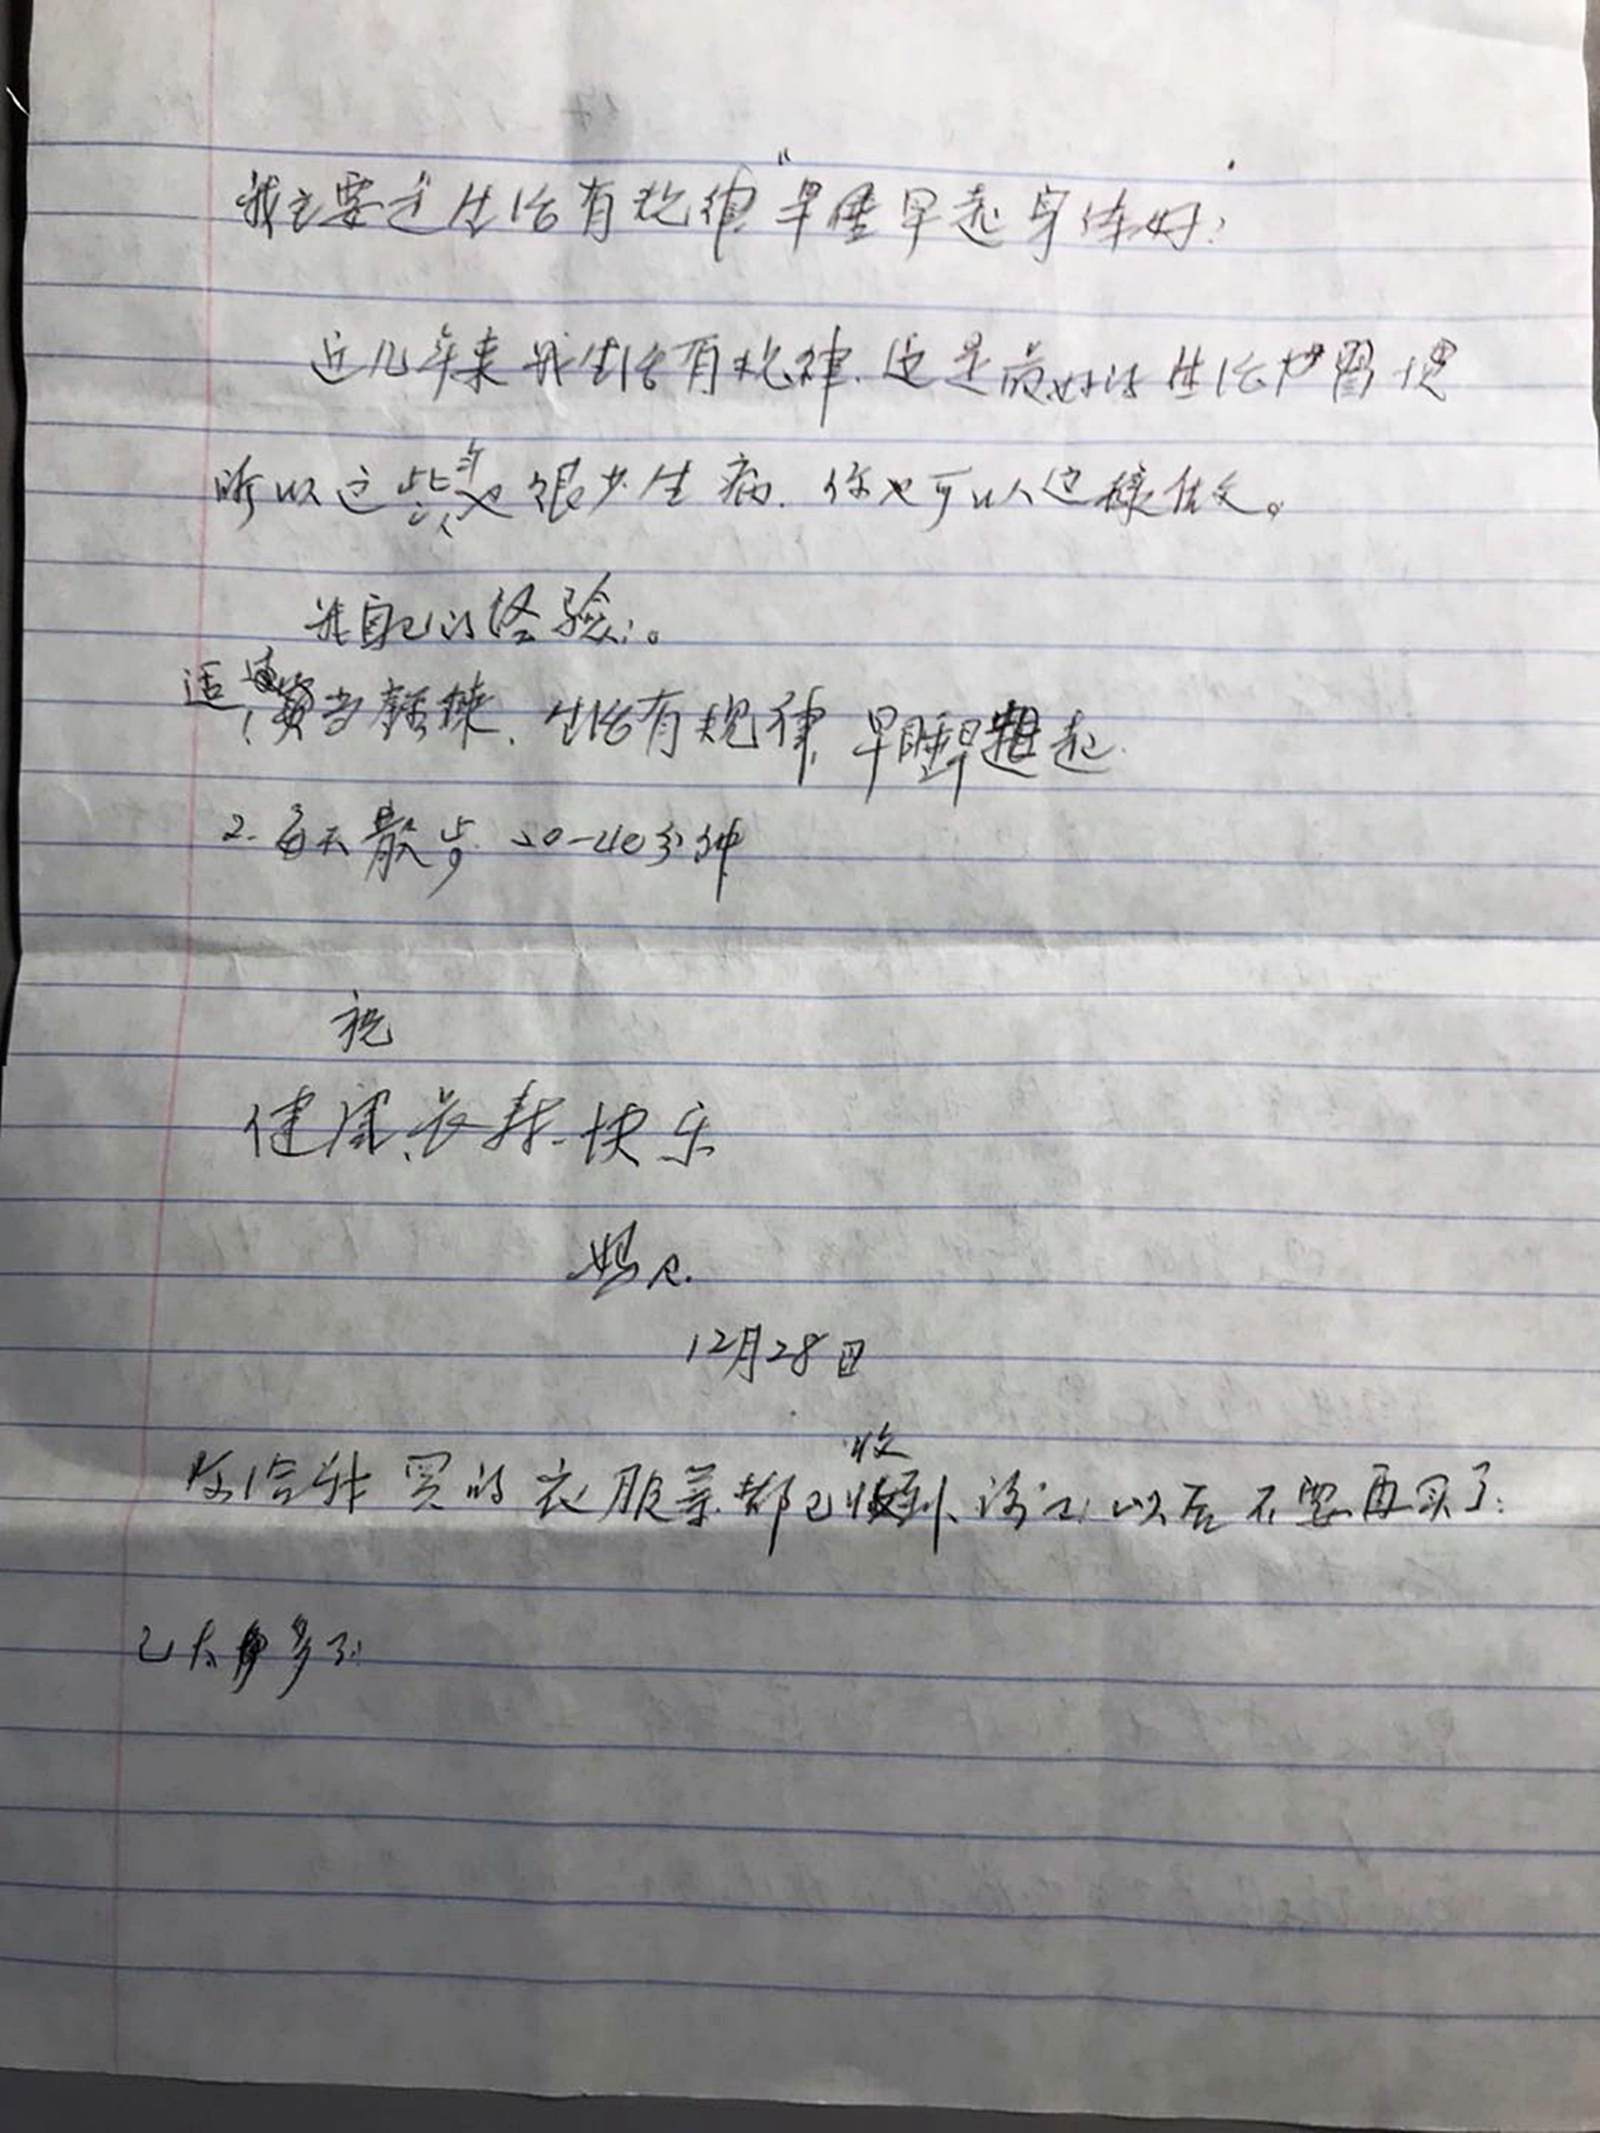 我主要是生活有规律"早睡早起身体好.
近几年来我生活有规律.这是最好的生活习惯
所以这些年也很少生病.你也可以这样做。
我自己的经验:。
适当锻炼.生活有规律,早睡早起.
2.每天散步20-40分钟
祝
健康、长寿、快乐
妈
12月28日
你给我买的衣服等都已收到、以后不要再买了.
已太多了.